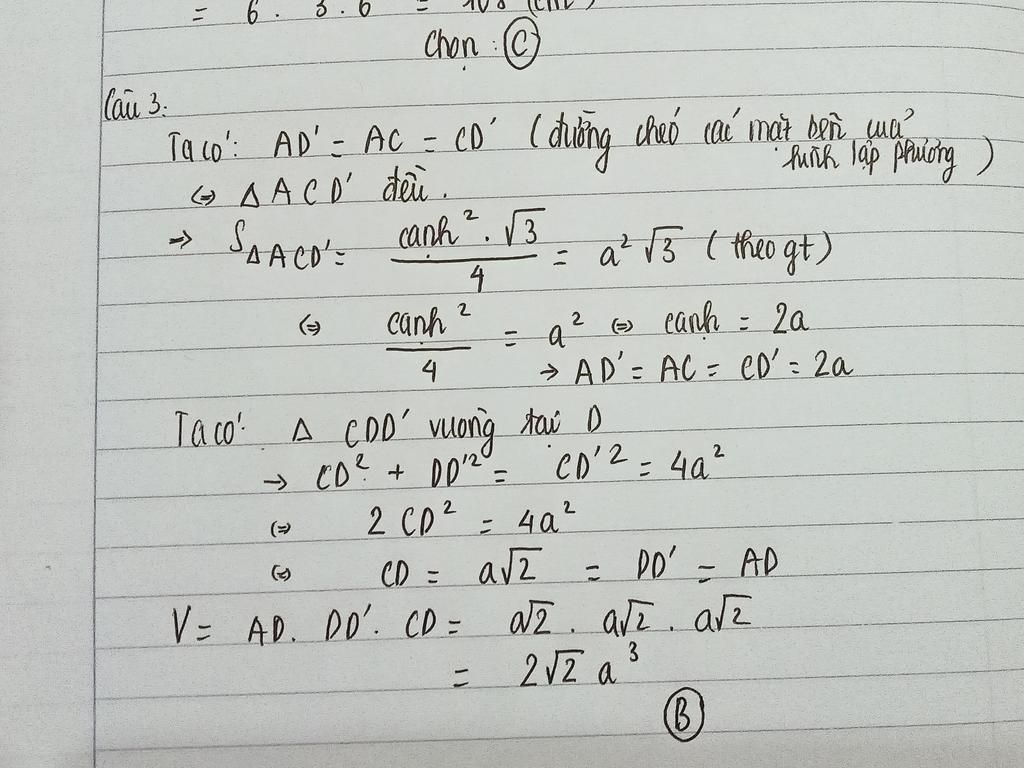 = 6 . 3 . 6 = 108 (cm
Chọn : C
Câu 3:
Ta có: AD' = AC = CD' (đường chéo các mặt bên của
hình lập phương)
⇔ Δ ACD' đều.
⇒ S ΔACD' = cạnh² . √3 / 4 = a²√3 (theo gt)
⇔ cạnh² / 4 = a² ⇔ cạnh = 2a
→ AD' = AC = CD' = 2a
Ta có: Δ CDD' vuông tại D
→ CD² + DD'² = CD'² = 4a²
⇔ 2 CD² = 4a²
⇔ CD = a√2 = DD' = AD
V = AD. DD'. CD = a√2 . a√2 . a√2
= 2√2 a³
B